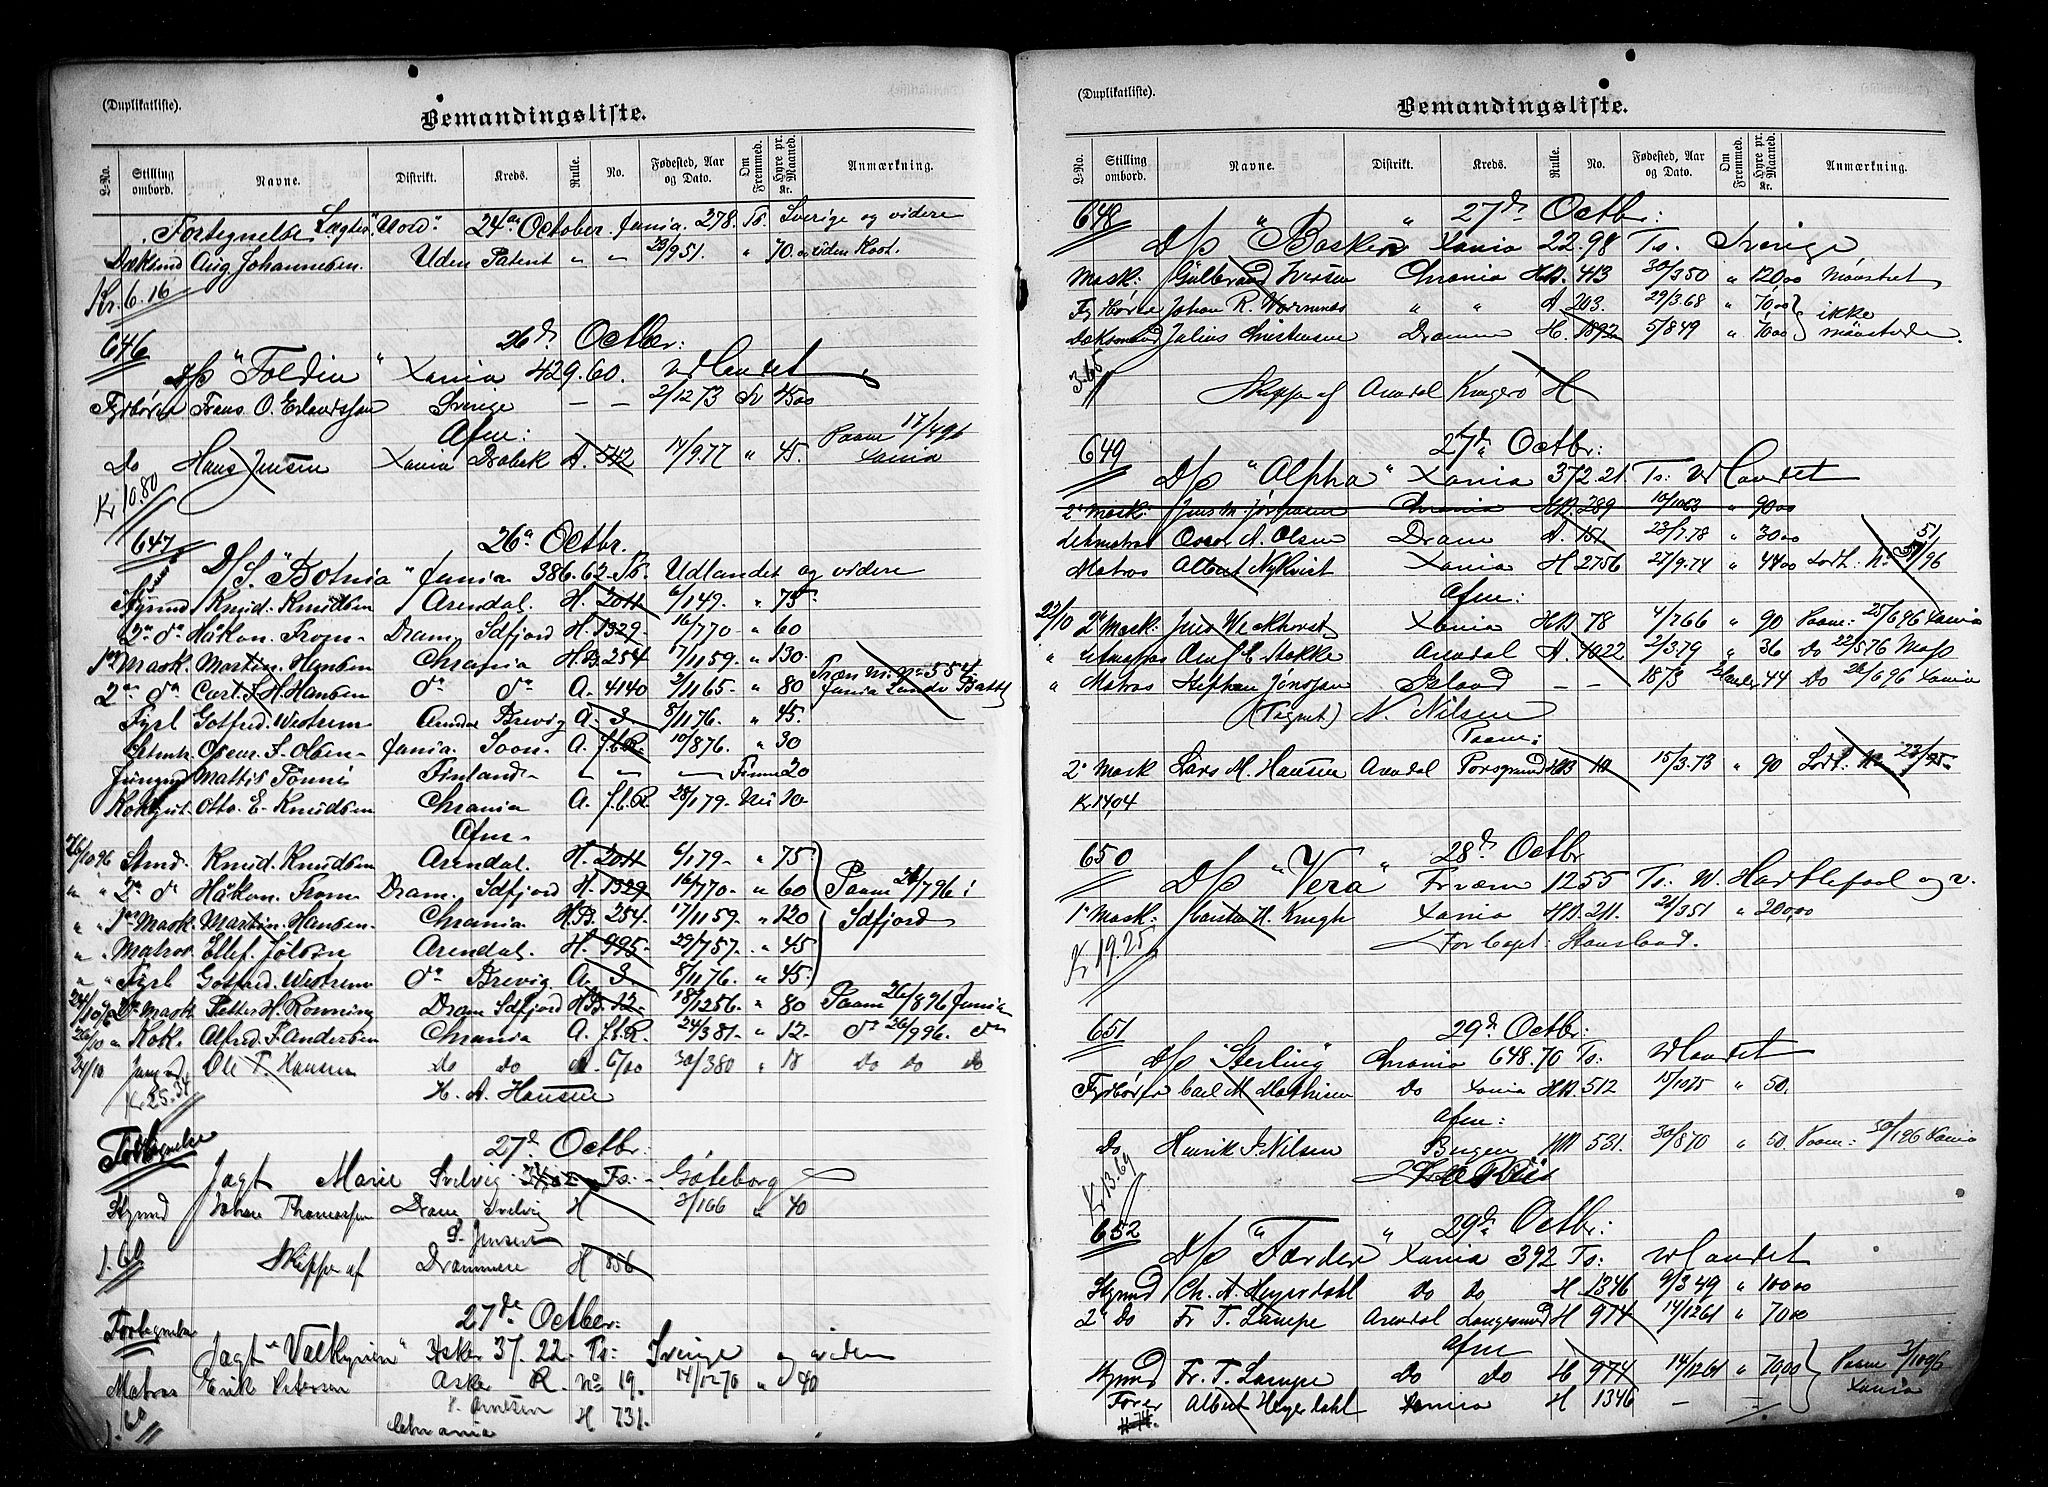 (Duplikatliste).
Bemandingsliste.
L-No. Stilling ombord. Navne. Distrikt. Kreds. Rulle. No. Fødested, Aar og Dato. Om Fremmed. Hyre pr. Maaned. Kr. Anmærkning.
Fortegnelse Lægter "Nord" 24de October. Xania 278. Ts. Sverige og videre
Dæksmd Aug Johannesen. Uden Patent " " 23/9 51. " 70.
Kr. 6.16
646 26d Octbr:
D/s "Foldin" Xania 429.60. Udlandet
Fyrbøter Frans O. Erlandssen Sverige — — 2/12 73 Sv 4500
Afm:
Do Hans Jensen Xania Drøbak A. 542 14/9.77 " 45. Paam 17/4 96 Xania
Kr 10.80
647 26d Octbr.
D/S. "Botnia" Xania 386.62 Ts. Udlandet og videre
Styrmd Knud Knudsen Arendal. H. 2011 6/1 49. " 75
2den do Håkon From Dram. Sdfjord H. 1329 16/7 70 " 60
1ste Mask. Martin Hansen Chrania H.B. 254 17/11 59 " 130
2den do Carl S. H. Hansen do do A. 4140 2/11 65 " 80
Fyrb Gotfred Westrem Arendal Brevig A. 3. 8/11 76. " 45.
Letmtr. Oscar F. Olsen Xania. Soon. A. f.t.R. 10/8 76. " 30
Jungmd Mattis Tönni Finland " " — Finne 20
Kokgut. Otto E. Knudsen Chrania A. f.t.R. 28/1 79. Nei 10
Afm.
26/10 96 Stmd. Knud. Knudsen Arendal. H. 2011 6/1 79 " 75
" " 2den do Håkon From Dram. Sdfjord H. 1329 16/7 70 " 60 Paam 26/7 96 i
" " 1ste Mask. Martin Hansen Chrania H.B. 254. 17/11 59 " 120 Sdfjord
" " Matros Ellef Jölsen Arendal. H. 995 29/7 57 " 45
" " Fyrb Gotfred Westrem do Brevig A. 3. 8/11 76. " 45
24/10 96 2den Mask Petter H. Ronning Dram Sdfjord H.B. 12. 18/12 56 " 80 Paam 26/8 96 Xania
26/10 " Kok. Alfred F. Andersen Chrania A. f.t.R. 24/3 81. " 12. do 26/9 96. do
24/10 Jungmd Ole T. Hansen do do A. 6/00 30/3 80 " 18 Do Do Do
Kr 25.34 H. A. Hansen
Fortegnelse 27d Octbr:
Jagt Marie Svelvig Ts. Göteborg
Stymd Johan Thomassen Dram Svelvig H 3/1 66 " 40
P. Jensen
1.60 Skipper af Drammen H 856
Fortegnelse 27de Octber:
Jagt "Valkyrien" Asker 37.22 Ts: Sverige og viden
Matros Erik Petersen Asker R. No 19. 14/12 70 " 40
H 731.
Chrania
1.60
(Duplikatliste).
Bemandingsliste.
L-No. Stilling ombord. Navne. Distrikt. Kreds. Rulle. No. Fødested, Aar og Dato. Om Fremmed. Hyre pr. Maaned. Kr. Anmærkning.
648 27d Octbr:
D/s "Basken" Xania 22.98 Ts. Sverige
Mask: Gulbrand Iversen Chrania HB. 413 30/3 50 " 12000 Mønstret
Fyrbøter Johan R. " " A. 203. 29/3 68 " 7000 ikke
Dæksmand Julius Christensen Drammen H. 1892 5/8 49 " 7000 mønstrede.
3.65
Skipper af Arendal Kragerö H
649 27d Octbr:
D/s "Alpha" Xania 372.21 Ts: Udlandet
2d Mask: Jens M. Jørgensen Chrania HB. 289 10/10 63 " 9000
Letmatros Oscar A. Olsen Dram A. 151 23/7.78 " 3000
Matros Albert Nykvist Xania H 2756 27/9.74 " 4400
Afm:
22/10 2d Mask: Xania HB 78 4/7 66 " 90 Paam: 25/6 96 Xania
" Letmatros Stokke Arendal A. 1022 2/3 79 " 36 Do 22/5 96 Moss
" Matros Stefhan Jönsson Island — — 18/3 44 Do 26/6 96 Xania
(Tegnet) N. Nilsen
Paam:
2d Mask Lars M. Hansen Arendal Porsgrund HB 10 15/3.73 " 90
Kr 14,04
650 28d Octbr
D/s "Vera" 1255 Ts. W. Hartlepool og v.
1ste Mask: Karsten H. Krogh Xania HB. 211. 21/3 51 " 200,00
For Capt:
Kr 19.25
651 29d Octbr:
D/s "Sterling" Chrania 648.70 Ts: Udlandet
Fyrbøter Carl M Mathisen Do Xania HB. 512 15/10 75 " 50.
Afm:
Do Henrik J. Nilsen Bergen HB. 531. 30/8 70 " 50 Paam: 30/1 96 Xania
Kr 13.69
652 29d Octbr:
D/s "Færder" Xania 392 Ts: Udlandet
Stymd Ch. A. Heyerdahl Do Do H. 1346 9/3 49 " 10000
2d Do Fr. T. Lampe Arendal Langesund H 974 14/12 61 " 7000
Afm
Stymd Fr. T. Lampe Do Do H 974 14/12 61 " 70,00 Paam 3/10 96
Fører Albert Heyerdahl Xania H 1346 — — Xania